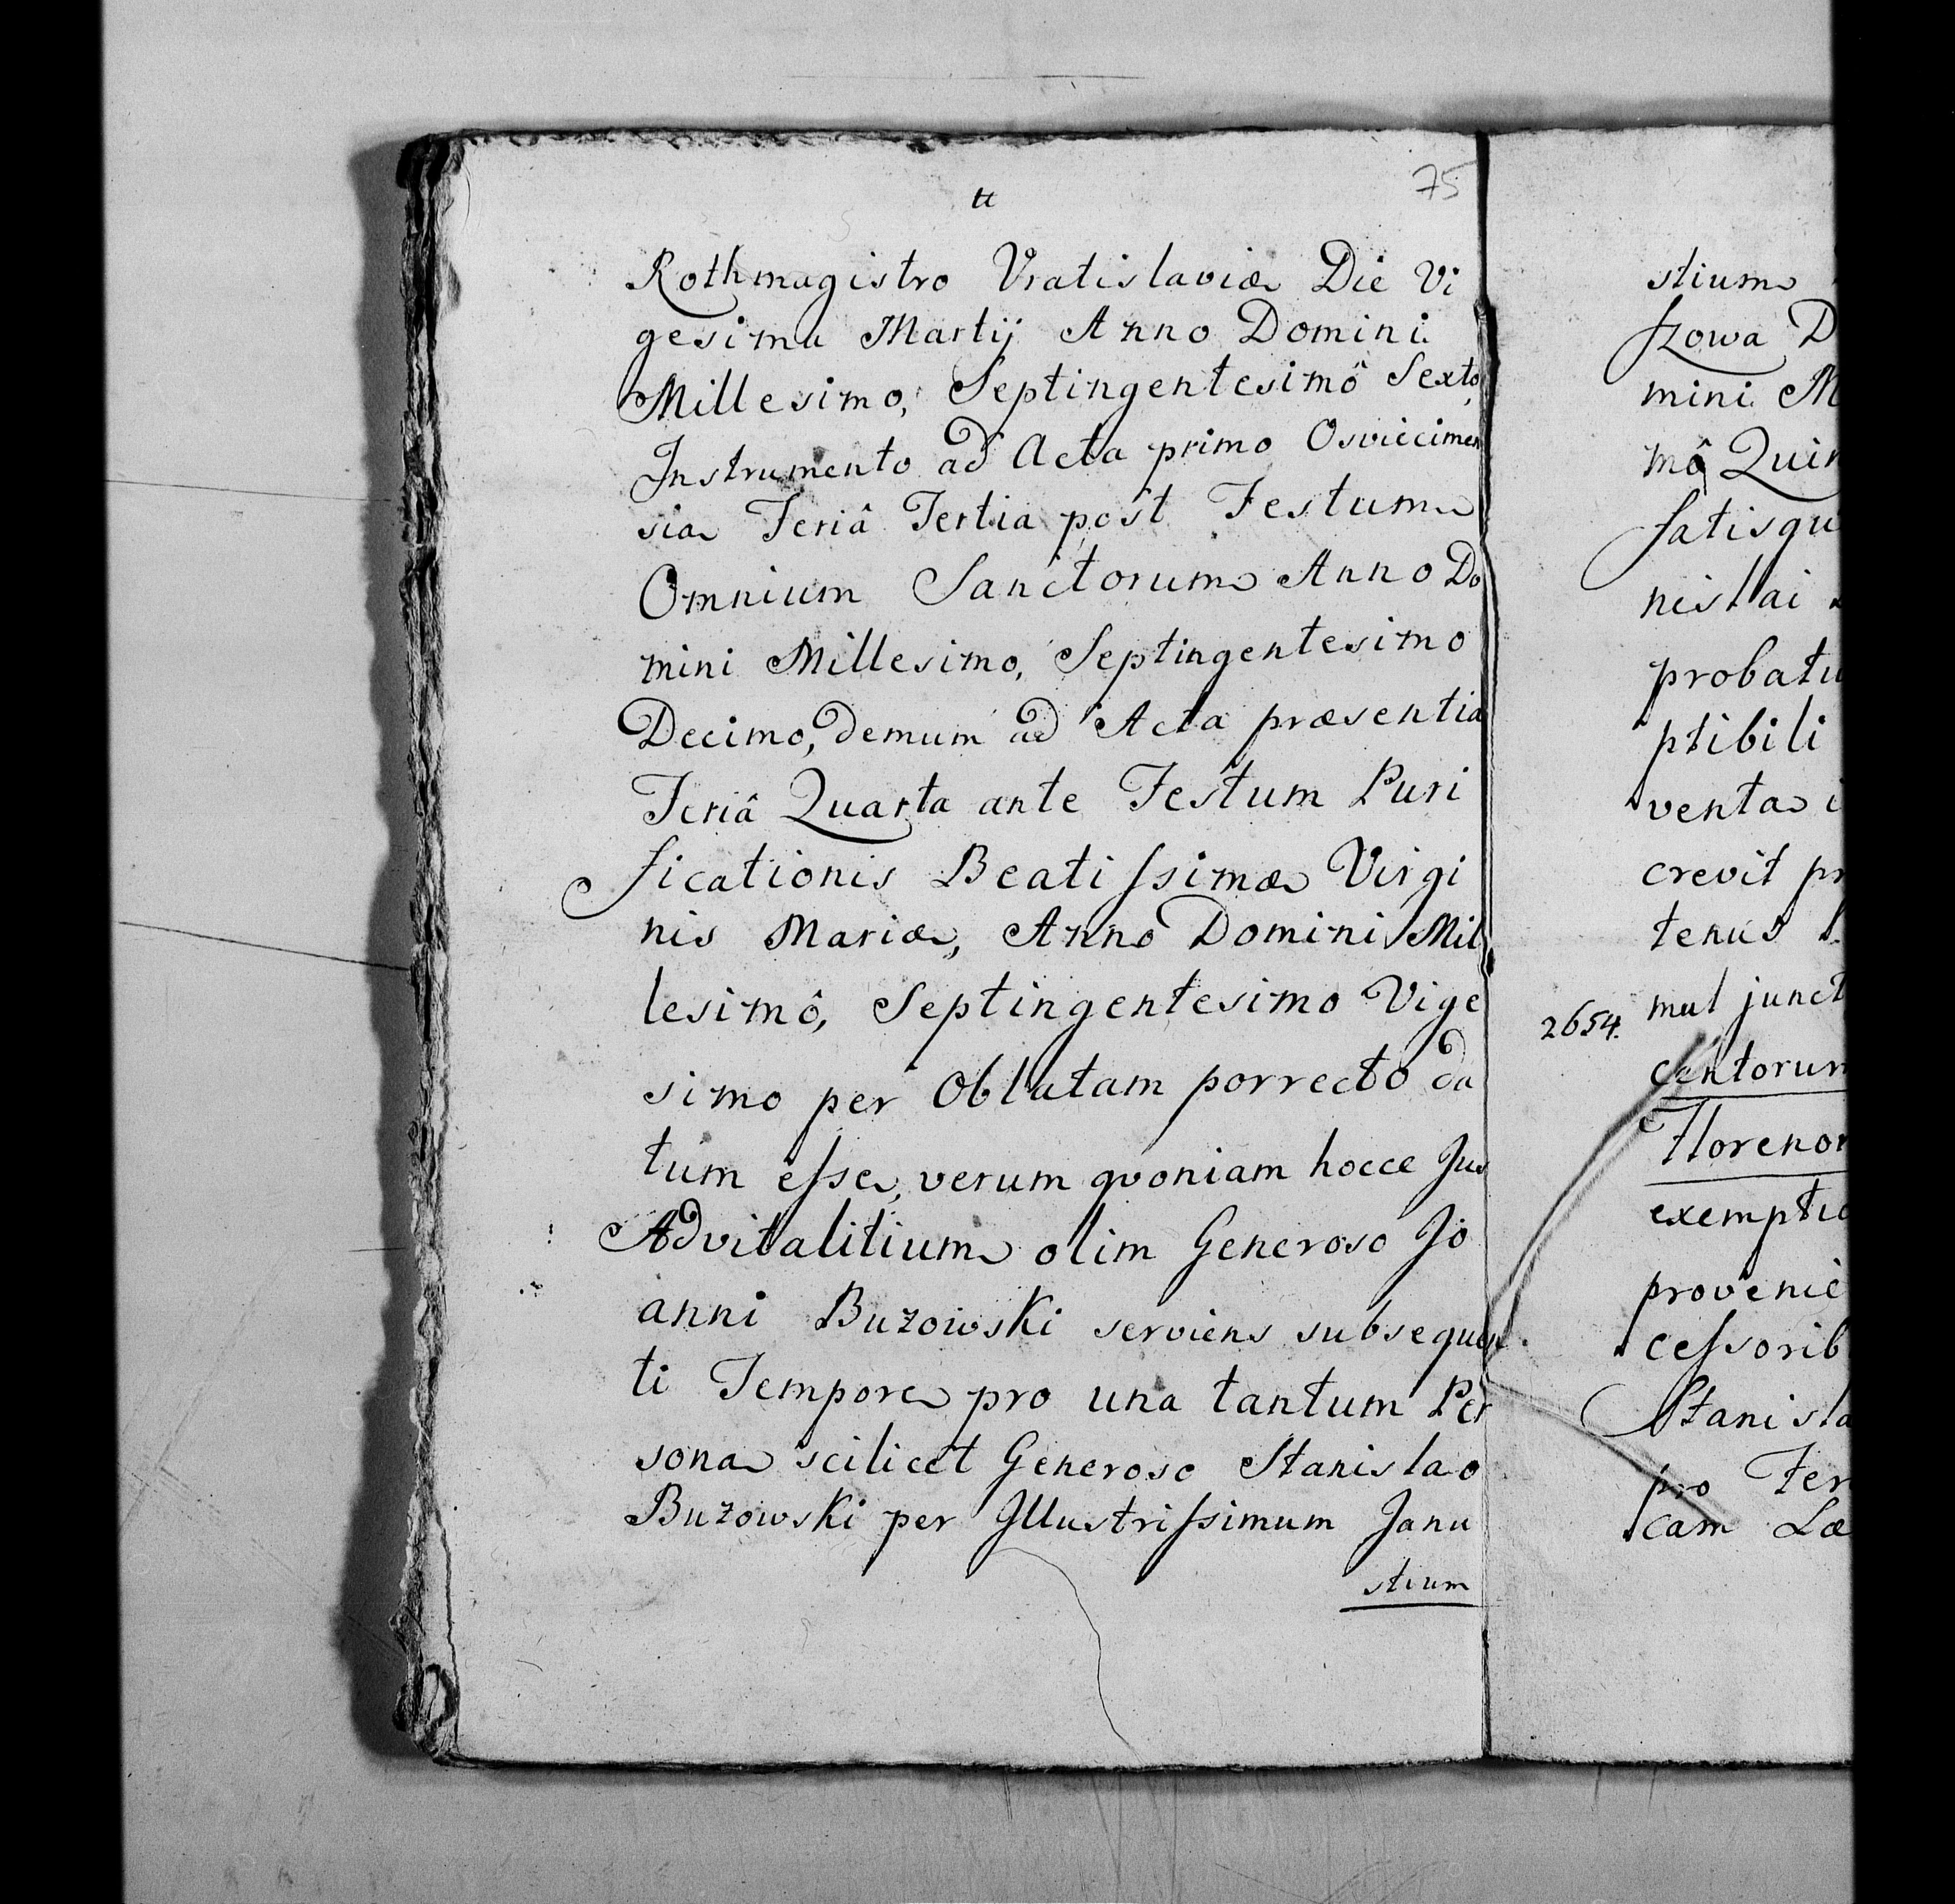 tt
75
Rothmagistro Vratislaviæ Die Vi
gesima Martij Anno Domini
Millesimo, Septingentesimô Sexto,
Instrumento ad Acta primo Osviecimen
sia Feriâ Tertia post Festum
Omnium Sanctorum Anno Do
mini Millesimo, Septingentesimo
Decimo, demum ad Acta præsentia
Feriâ Quarta ante Festum Puri
ficationis Beatissimæ Virgi
nis Mariæ, Anno Domini Mil
lesimô, Septingentesimo Vige
simo per Oblatam porrecto da
tum esse, verum qvoniam hocce Jus
Advitalitium olim Generoso Jo
anni Buzowski serviens subsequen
ti Tempore pro una tantum Per
sona scilicet Generoso Stanislao
Buzowski per Illustrissimum Janu
stium
stium
szowa D
mini M
mô Quin
satisqu
nislai
probatu
ptibili
venta i
crevit pr
tenus
2654. mul junct
centorum
Florenor
exemptio
provenie
cessorib
Stanisla
pro Ter
cam Læ